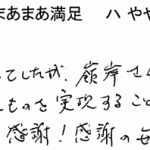 まあまあ満足　ハ やや
てしたが、嶺岸さん
ものを実現すること
感謝！感謝のせ